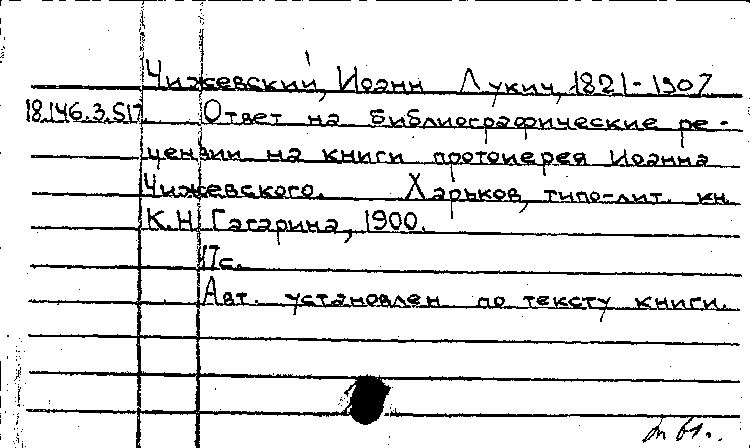 Чижевский, Иоанн Лукич, 1821-1907
18.146.3.517. Ответ на библиографические ре-
цензии на книги протоиерея Иоанна
Чижевского. Харьков, типо-лит. кн.
К.Н. Гагарина, 1900.
17с.
Авт. установлен по тексту книги.